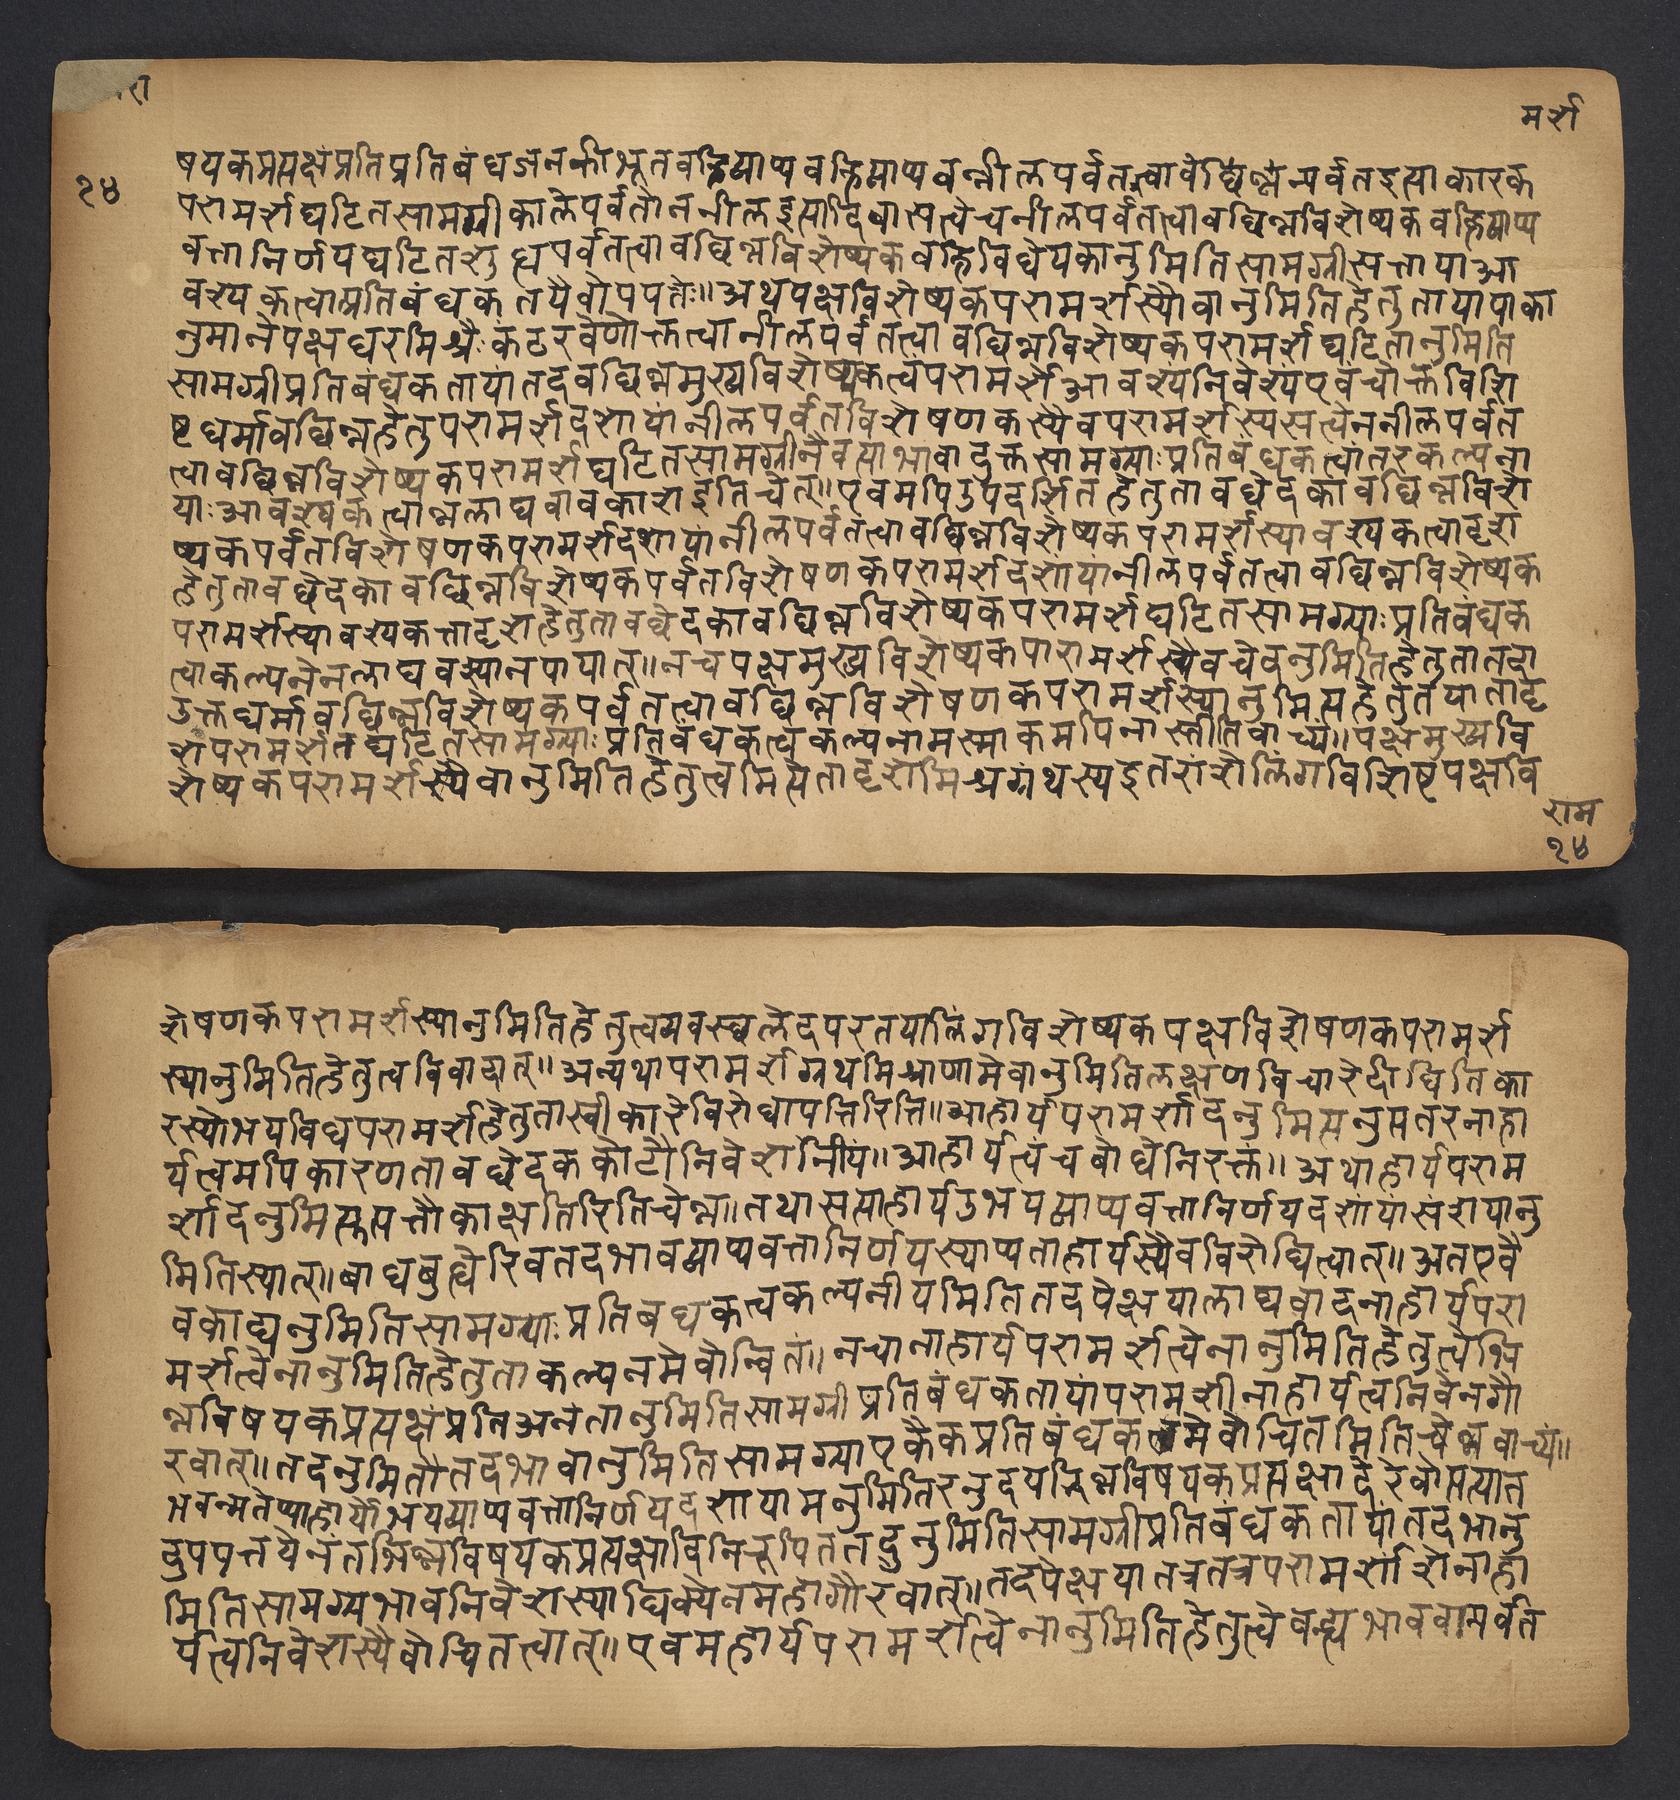 रा
मर्श
१४
षयकप्रत्यक्षंप्रतिप्रतिबंधजनकीभूतवह्निव्याप्यवह्निव्याप्यवन्नीलपर्वतत्वावछिन्नंपर्वतइत्याकारक
परामर्शघटितसामग्रीकालेपर्वतोननीलइत्यादिबाधसत्वेचनीलपर्वतत्वावछिन्नविशेष्यकवह्निव्याप्य
वत्तानिर्णयघटितशुद्धपर्वतत्वावछिन्नविशेष्यकवह्निविधेयकानुमितिसामग्रीसत्तायाआ
वश्यकत्वात्प्रतिबंधकतयैवोपपत्तेः॥अथपक्षविशेष्यकपरामर्शस्यैवानुमितिहेतुतायापाका
नुमानेपक्षधरमिश्रैःकंठरवेणोक्तत्वान्नीलपर्वतत्वावछिन्नविशेष्यकपरामर्शघटितानुमिति
सामग्रीप्रतिबंधकतायांतदवछिन्नमुख्यविशेष्यकत्वंपरामर्शेआवश्यंनिवेश्यंएवंचोक्तविशि
ष्टधर्मावछिन्नहेतुपरामर्शदशायांनीलपर्वतविशेषणकस्यैवपरामर्शस्यसत्वेननीलपर्वत
त्वावछिन्नविशेष्यकपरामर्शघटितसामग्रीनैवत्याभावादुक्तसामग्र्याःप्रतिबंधकत्वांतरकल्पना
याःआवश्यकत्वान्नलाघवावकाशइतिचेत्॥एवमपिउपदर्शितहेतुतावछेदकावछिन्नविशे
ष्यकपर्वतविशेषणकपरामर्शदशायांनीलपर्वतत्वावछिन्नविशेष्यकपरामर्शस्यावश्यकत्वादृश
हेतुतावछेदकावछिन्नविशेष्यकपर्वतविशेषणकपरामर्शदशायांनीलपर्वतत्वावछिन्नविशेष्यक
परामर्शस्यावश्यकत्तादृशहेतुतावछेदकावछिन्नविशेष्यकपरामर्शघटितसामग्र्याःप्रतिबंधक
त्वाकल्पनेनलाघवस्यानपायात्॥नचपक्षमुख्यविशेष्यकपारामर्शस्यैवचेदनुमितिहेतुतातदा
उक्तधर्मावछिन्नविशेष्यकपर्वतत्वावछिन्नविशेषणकपरामर्शस्यानुमित्यहेतुतयातादृ
शपरामर्शतघटितसामग्र्याःप्रतिबंधकत्वकल्पनामस्माकमपिनास्तीतिवाच्यं॥पक्षमुख्यवि
शेष्यकपरामर्शस्यैवानुमितिहेतुत्वमित्येतादृशोमिश्रग्रंथस्यइतरांशेलिंगविशिष्टपक्षवि
राम
१४
शेषणकपरामर्शस्यानुमितिहेतुत्वमवस्छलेदपरतयालिंगविशेष्यकपक्षविशेषणकपरामर्श
स्यानुमितिहेतुत्वविवादात्॥अन्यथापरामर्शग्रंथमिश्राणामेवानुमितिलक्षणविचारेदीधितिका
रस्योभयविधपरामर्शहेतुतास्वीकारेविरोधापत्तिरित्ति॥आहार्यपरामर्शादनुमित्यनुत्पतरनाहा
र्यत्वमपिकारणतावछेदककोटौनिवेशनीयं॥आहार्यत्वंचबोधेनिरक्तं॥अथाहार्यपराम
र्शादनुमित्युत्पत्तौकाक्षतिरितिचेन्न॥तथासत्याहार्यउभयव्याप्यवत्तानिर्णयदशायांसंशयानु
मितिस्यात्॥बाधबुद्धेरिवतदभावव्याप्यवत्तानिर्णयस्याप्यताहार्यस्यैवविरोधित्वात्॥अतएवै
वकाद्यनुमितिसामग्र्याःप्रतिबंधकत्वकल्पनीयमितितदपेक्षयालाघवादनाहार्यपरा
मर्शत्वेनानुमितिहेतुताकल्पनमेवोन्चितं॥नचानाहार्यपरामर्शत्वेनानुमितिहेतुत्वेभि
न्नविषयकप्रत्यक्षंप्रतिअनंतानुमितिसामग्रीप्रतिबंधकतायांपरामर्शेनाहार्यत्वनिवेनगौ
रवात्॥तदनुमितौतदभावानुमितिसामग्र्याएकैकप्रतिबंधकत्वमेवोचितमितिचेन्नवाच्यं॥
भवन्मतेप्याहार्योभयव्याप्यवत्तानिर्णयदशायामनुमितिरनुदयाद्भिन्नविषयकप्रत्यक्षादेरेवोत्पत्यात
दुपपत्तयेनंतभिन्नविषयकप्रत्यक्षाविनिरूपिततदनुमितिसामग्रीप्रतिबंधकतायांतदभानु
मितिसामग्र्यभावनिवेशस्याधिक्येनमहागौरवात्॥तदपेक्षयातत्रतत्रपरामर्शांशेनाहा
र्यत्वनिवेशस्यैवोचितत्वात्॥एवमहार्यपरामर्शत्वेनानुमितिहेतुत्वेवन्ह्यभाववान्पर्वत